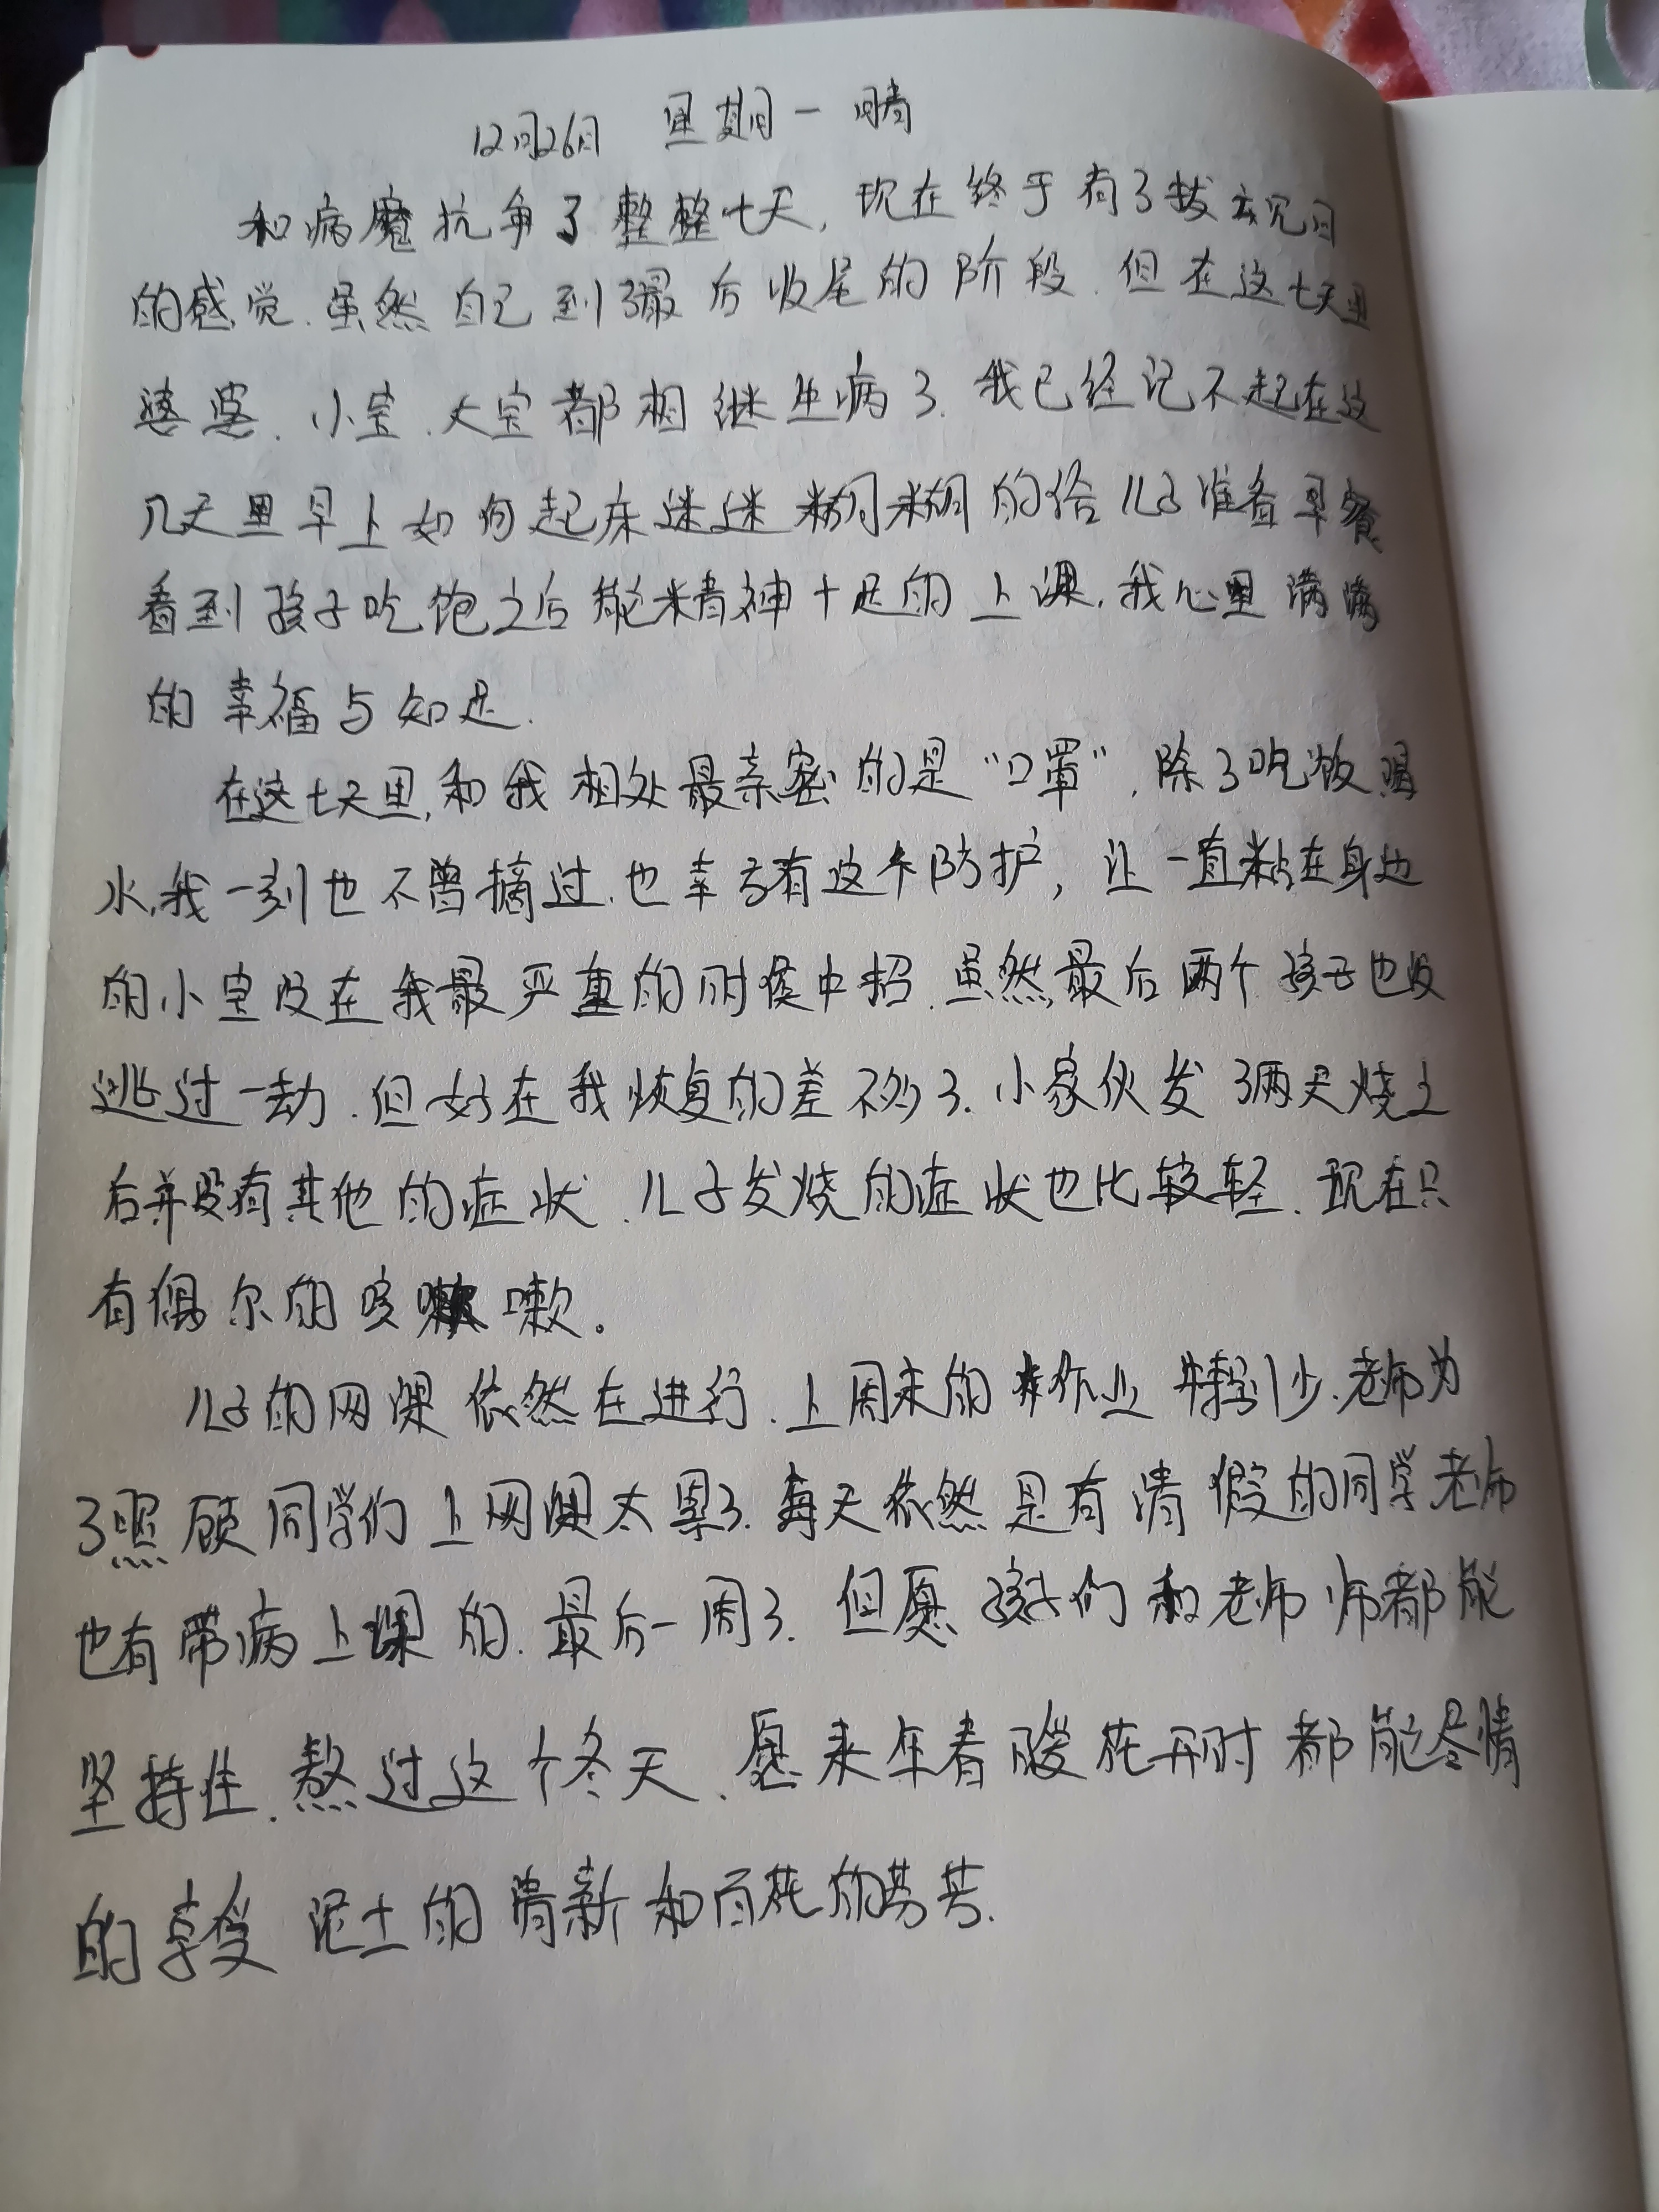 12月26日 星期一 晴
和病魔抗争了整整七天,现在终于有了拨云见日
的感觉.虽然自己到了最后收尾的阶段.但在这七天里
婆婆.小宝.大宝都相继生病了.我已经记不起在这
几天里早上如何起床迷迷糊糊的给儿子准备早餐
看到孩子吃饱之后能精神十足的上课.我心里满满
的幸福与知足.
在这七天里,和我相处最亲密的是“口罩”.除了吃饭喝
水,我一刻也不曾摘过.也幸亏有这个防护,让一直粘在身边
的小宝没在我最严重的时候中招.虽然最后两个孩子也没
逃过一劫.但好在我恢复的差不多了.小家伙发了两天烧之
后并没有其他的症状.儿子发烧的症状也比较轻.现在只
有偶尔的咳嗽。
儿子的网课依然在进行.上周末的作业特别少.老师为
了照顾同学们上网课太累了.每天依然是有请假的同学老师
也有带病上课的.最后一周了.但愿孩子们和老师师都能
坚持住.熬过这个冬天.愿来年春暖花开时都能尽情
的享受泥土的清新和百花的芬芳.